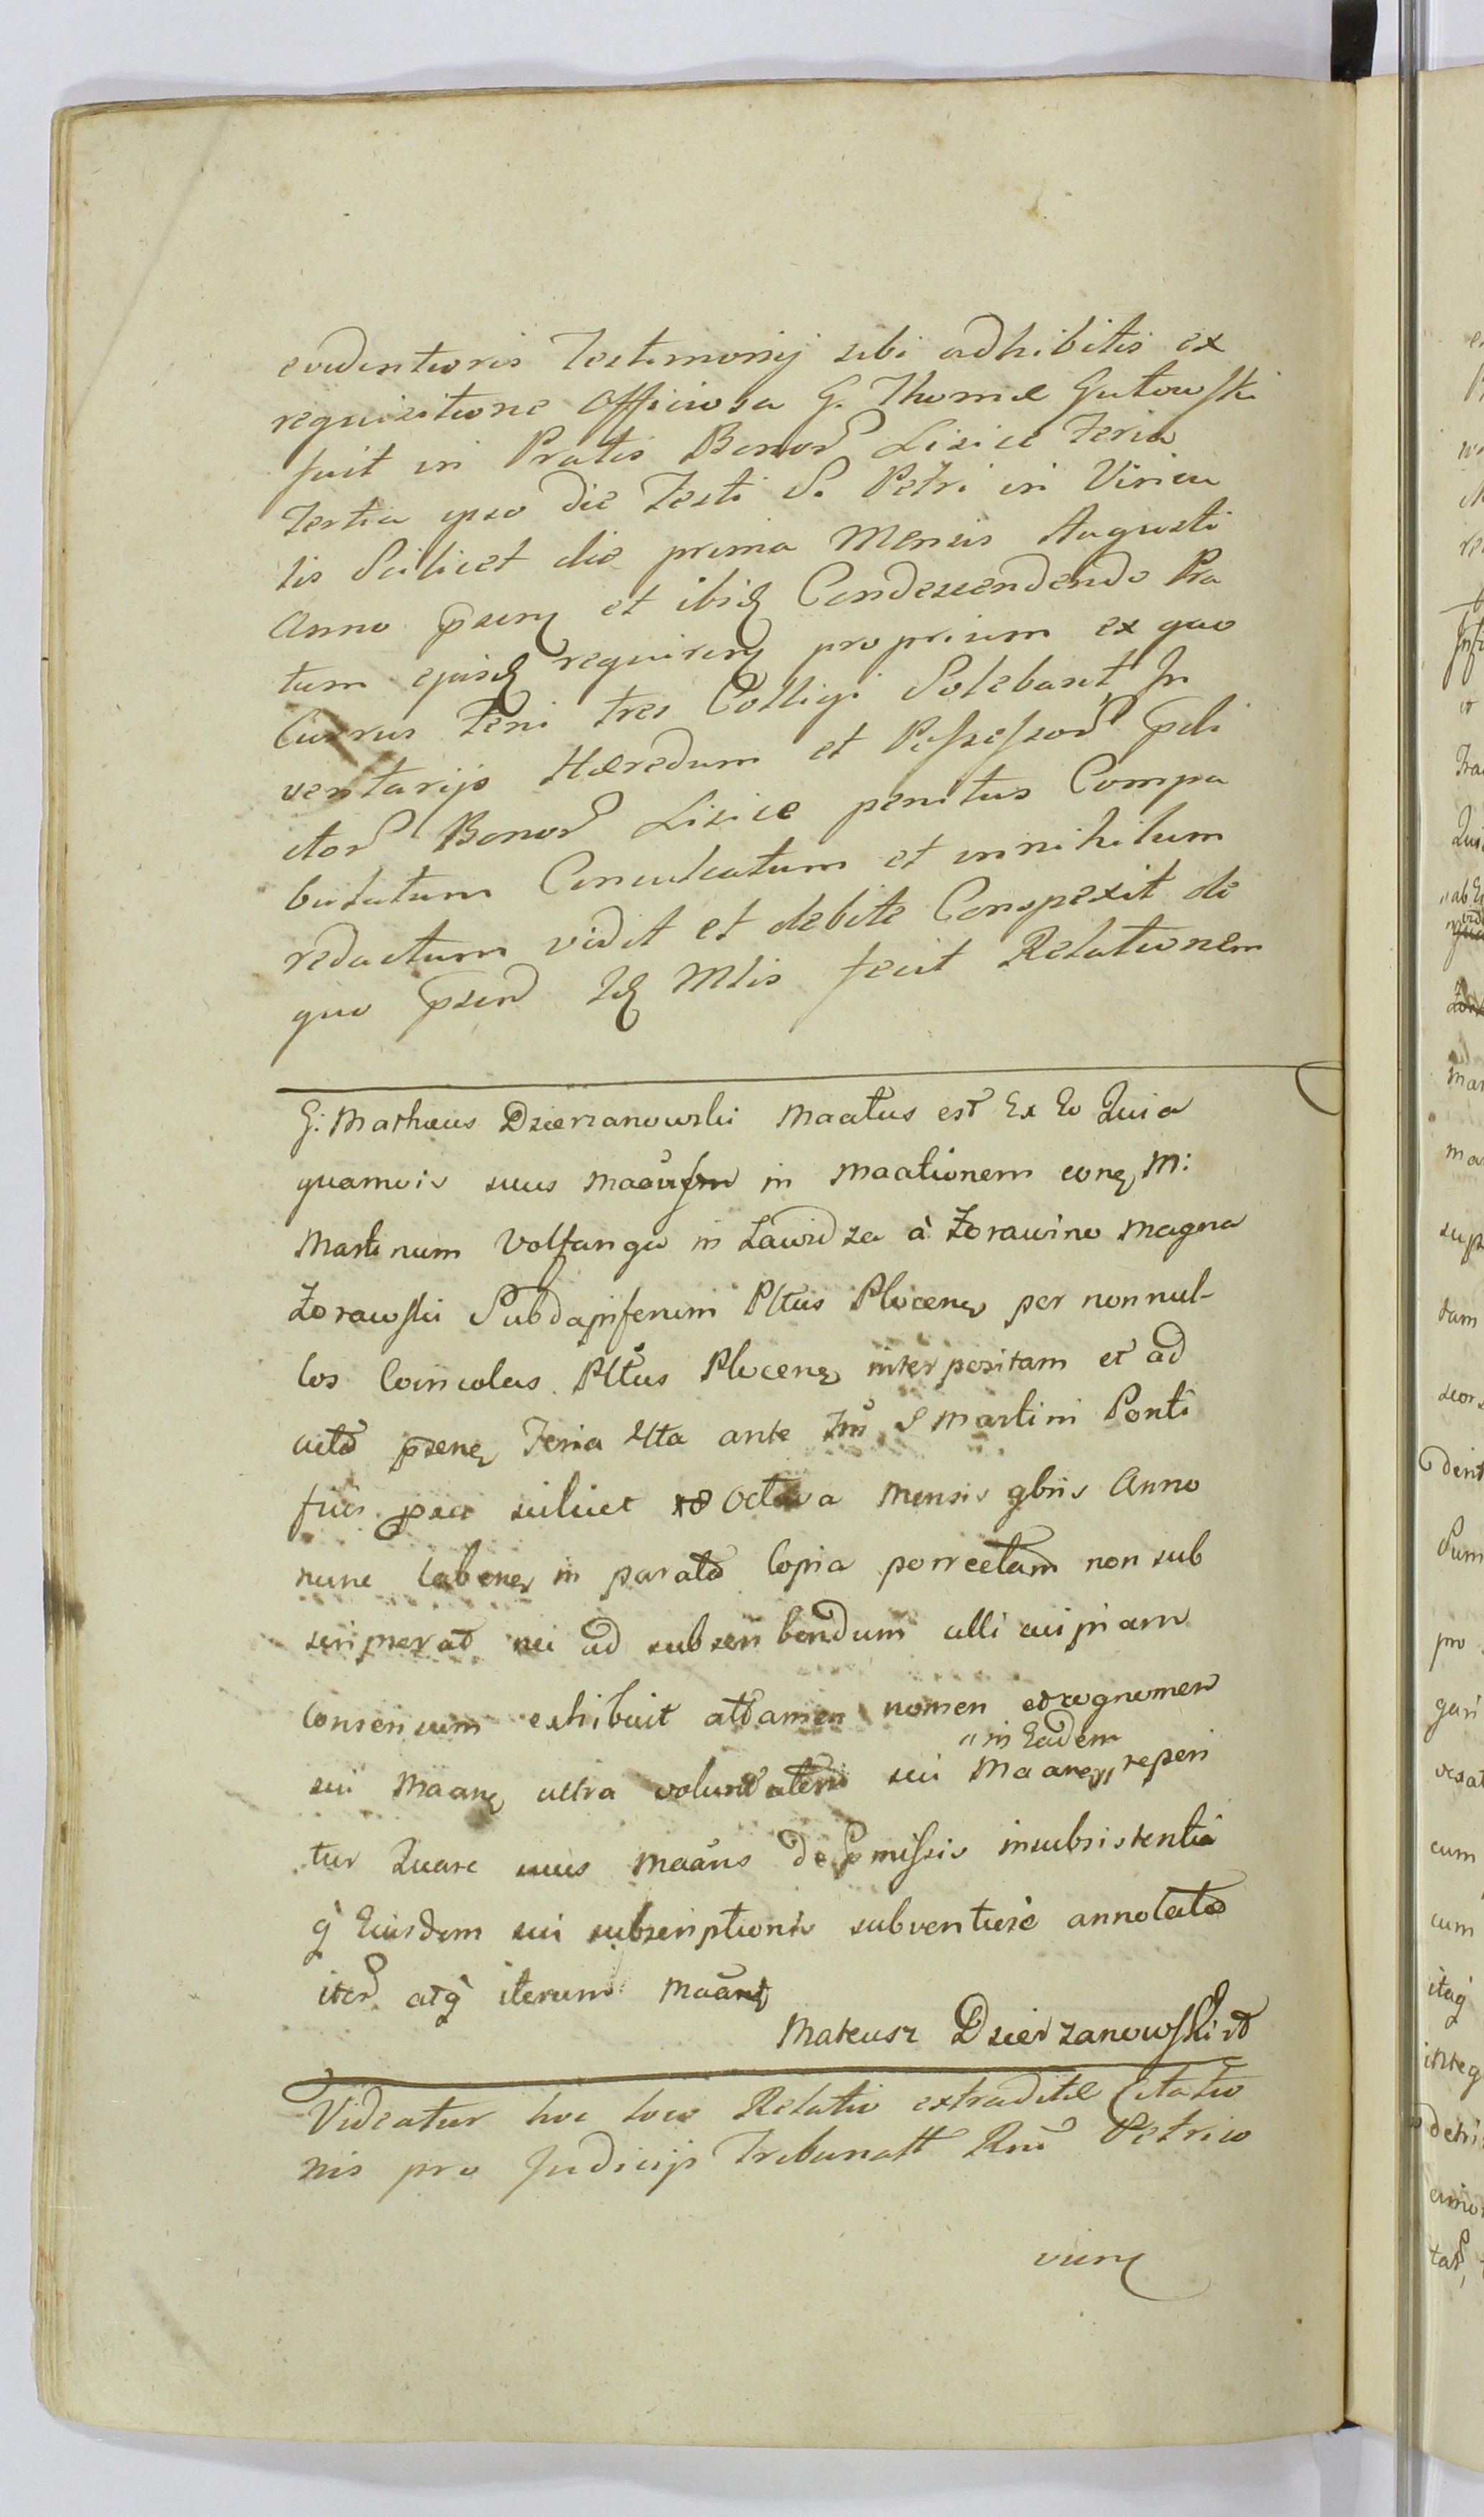 evidentioris Testimonij sibi adhibitis ex
requisitione officiosa G. Thomæ Gutowski
fuit in Pratis Bonor Lisice Feria
Tertia ipso die Festi S. Petri in Vincu
lis Scilicet die prima Mensis Augusti
Anno psenq et ibidq Condescendendo Pra
tum ejusdq requirenq proprium ex quo
Currus Feni tres Colligi Solebant In
ventarijs Hæredum et Possessor pdi
ctor Bonor Lisice penitus Compa
bulatum Conculcatum et in nihilum
redactum vidit et debite Conspexit de
quo psend Idq Mlis fecit Relationem
G: Mathæus Dzierzanowski Maatus est Ex Eo Quia
quamvis suus in Maationem conq M:
Martinum Volfanga in Lawidza à Zorawino Magna
Zorawski Subdapiferum Pltus Plocenq per nonnul-
los Coincolas Pltus Plocenq interpositam et ad
acta psenq Feria 4ta ante Fm S Martini Ponti
ficis scilicet Octava Mensis 9bris Anno
nunc labenq in parata Copia porrectam non sub
scripserat nec ad subscribendum alli cuipiam
Consensum exhibuit attamen nomen et cognomen
sui Maanq ultra voluntatem sui Maanq, "in Eadem reperi
tur Quare suus Maans de pmissis insubsistentia
q Eiusdem sui subscriptionis subventure annotata
iter atq iterum Maant
Mateusz Dzierzanowski
Videatur hoc loco Relatio extraditæ Citatio
nis pro Judicijs Tribunatt Rni Petrico
vienq